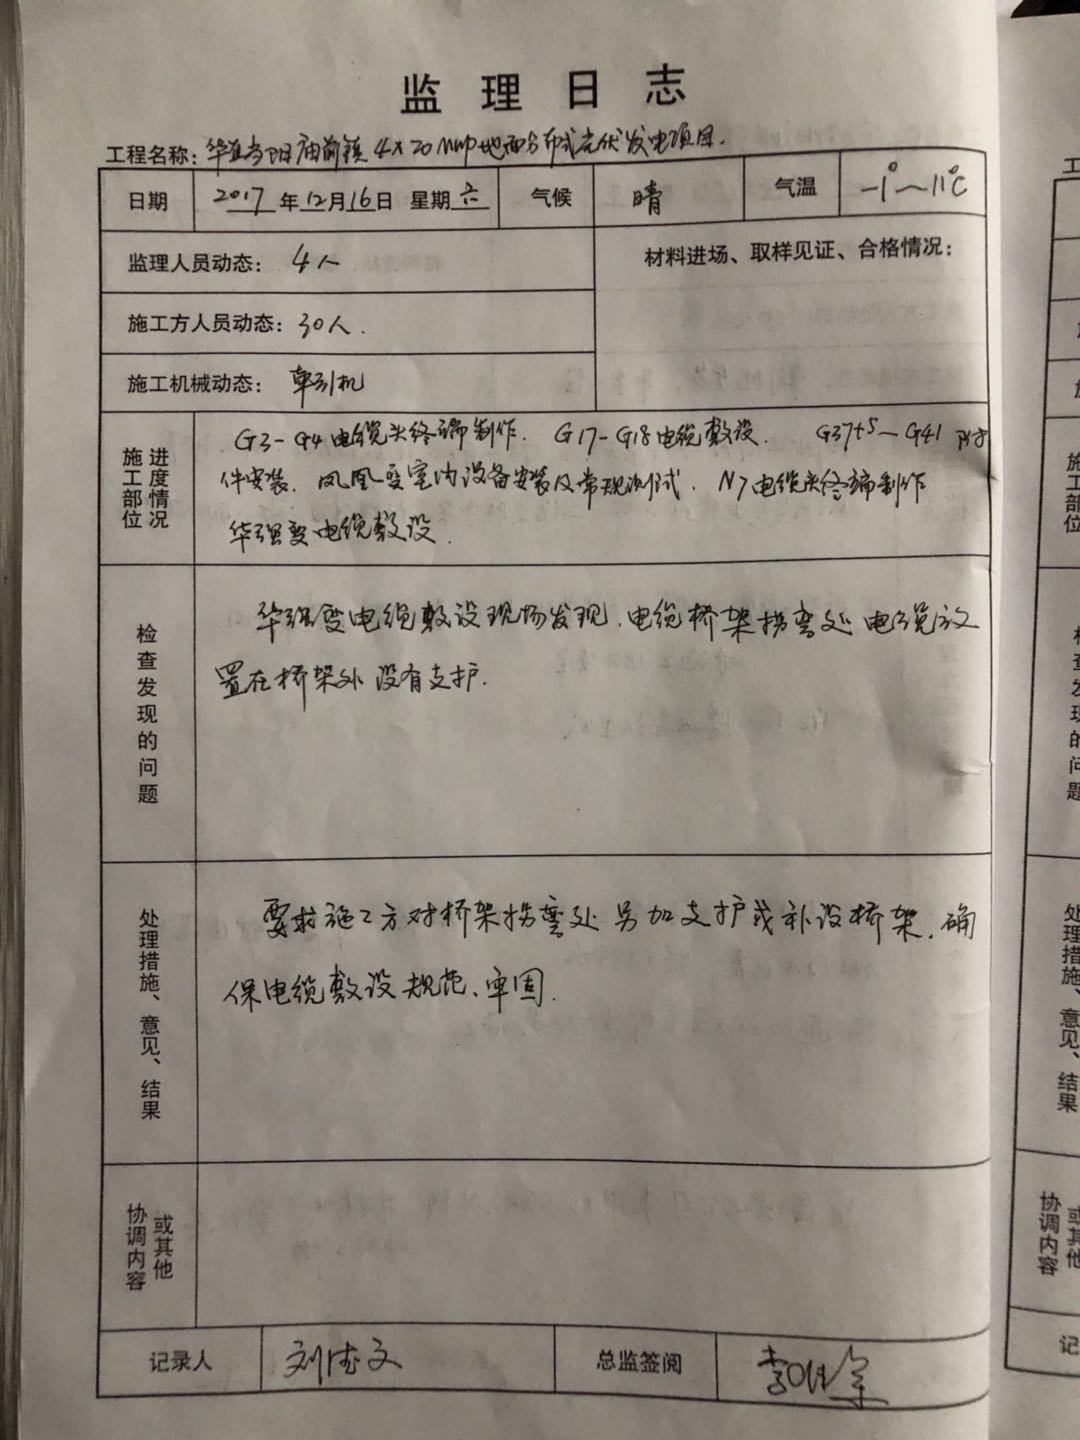 监理日志
工程名称：华 当阳庙前镇4×20MWp地面分布式光伏发电项目.
日期 2017年12月16日 星期六 气候 晴 气温 -1°～11℃
监理人员动态：4人
材料进场、取样见证、合格情况：
施工方人员动态：30人.
施工机械动态：牵引机
施工部位
进度情况
G3-G4电缆头终端制作. G17-G18电缆敷设. G37+5～G41附
件安装. 凤凰变室内设备安装及常规测试. N7电缆头终端制作
华强变电缆敷设.
检查发现的问题
华强变电缆敷设现场发现,电缆桥架拐弯处电缆放
置在桥架外没有支护.
处理措施、意见、结果
要求施工方对桥架拐弯处另加支护或补设桥架,确
保电缆敷设规范、牢固.
协调内容
或其他
记录人 刘 文 总监签阅 李
工
施工部位
处理措施、意见、结果
协调内容
记